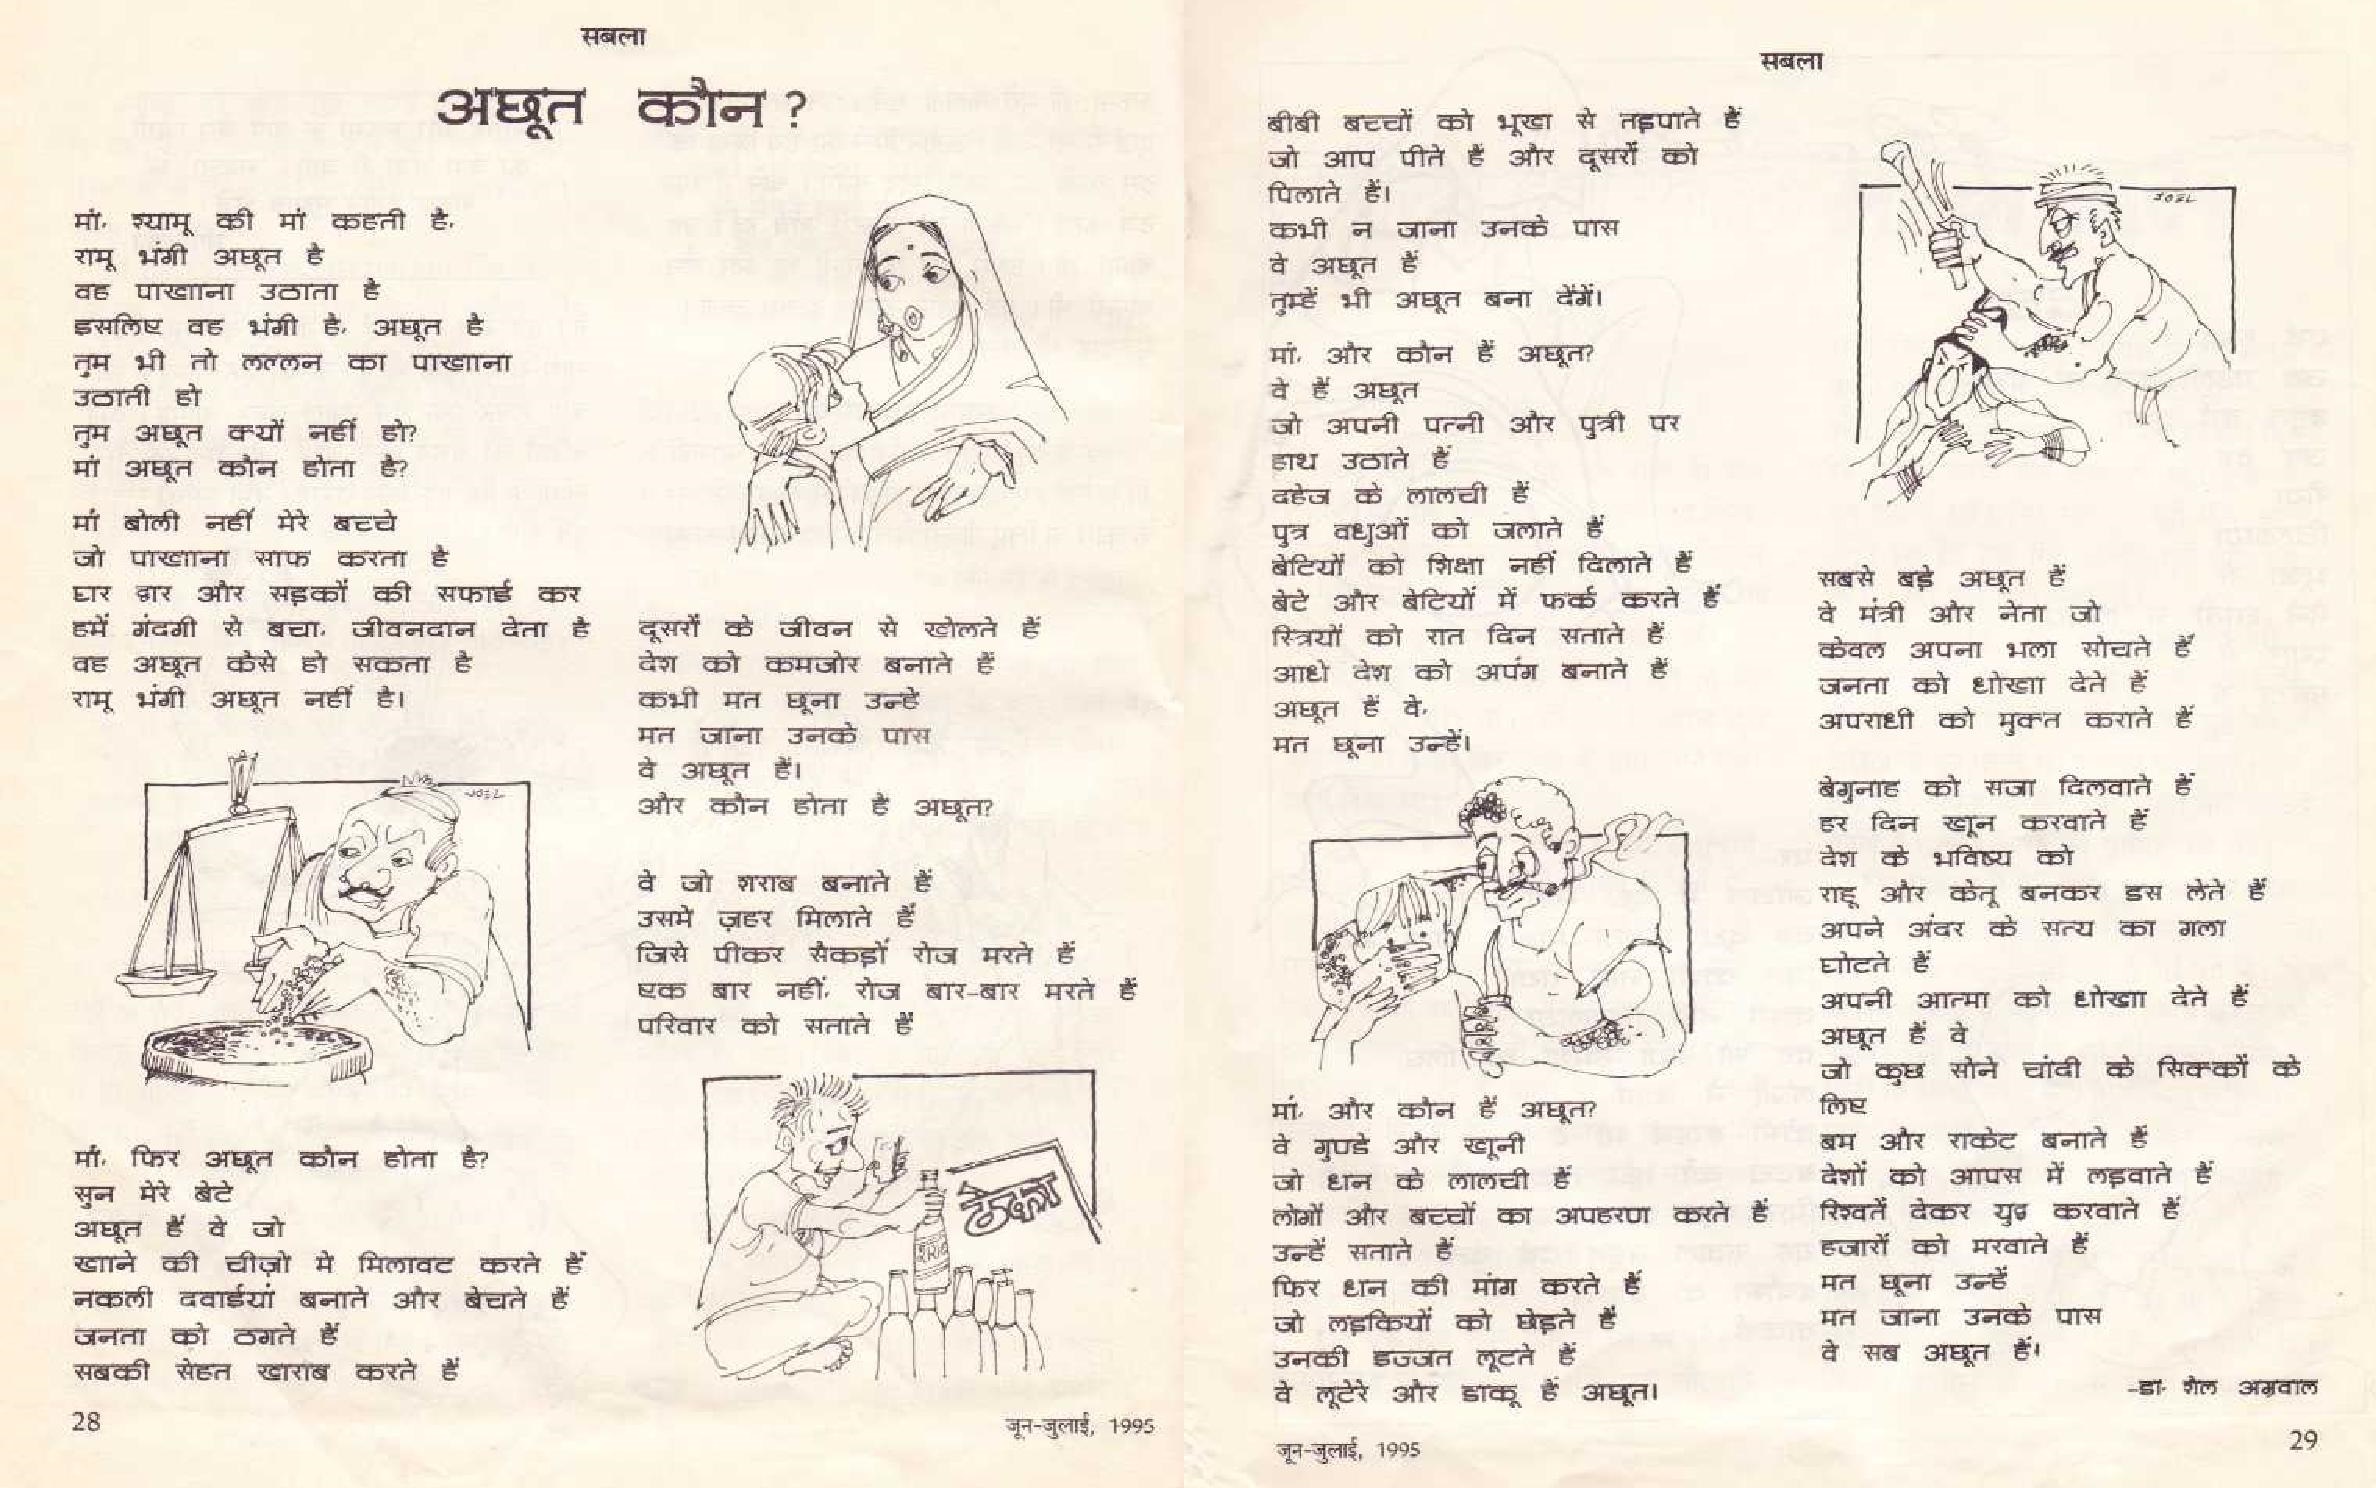 सबला
अछूत कौन?
मां, श्यामू की मां कहती है,
रामू भंगी अछूत है
वह पाखाना उठाता है
इसलिए वह भंगी है, अछूत है
तुम भी तो लल्लन का पाखाना
उठाती हो
तुम अछूत क्यों नहीं हो?
मां अछूत कौन होता है?
मां बोली नहीं मेरे बच्चे
जो पाखाना साफ करता है
घर द्वार और सड़कों की सफाई कर
हमें गंदगी से बचा, जीवनदान देता है
वह अछूत कैसे हो सकता है
रामू भंगी अछूत नहीं है।
JOEL
मां, फिर अछूत कौन होता है?
सुन मेरे बेटे
अछूत हैं वे जो
खाने की चीज़ो मे मिलावट करते हैं
नकली दवाईयां बनाते और बेचते हैं
जनता को ठगते हैं
सबकी सेहत खराब करते हैं
दूसरों के जीवन से खेलते हैं
देश को कमजोर बनाते हैं
कभी मत छूना उन्हे
मत जाना उनके पास
वे अछूत हैं।
और कौन होता है अछूत?
वे जो शराब बनाते हैं
उसमे ज़हर मिलाते हैं
जिसे पीकर सैकड़ों रोज मरते हैं
एक बार नहीं, रोज बार-बार मरते हैं
परिवार को सताते हैं
ठेका
28
जून-जुलाई, 1995
सबला
बीबी बच्चों को भूखा से तड़पाते हैं
जो आप पीते हैं और दूसरों को
पिलाते हैं।
कभी न जाना उनके पास
वे अछूत हैं
तुम्हें भी अछूत बना देंगें।
मां, और कौन हैं अछूत?
वे हैं अछूत
जो अपनी पत्नी और पुत्री पर
हाथ उठाते हैं
दहेज के लालची हैं
पुत्र वधुओं को जलाते हैं
बेटियों को शिक्षा नहीं दिलाते हैं
बेटे और बेटियों में फर्क करते हैं
स्त्रियों को रात दिन सताते हैं
आधे देश को अपंग बनाते हैं
अछूत हैं वे,
मत छूना उन्हें।
मां, और कौन हैं अछूत?
वे गुण्डे और खूनी
जो धन के लालची हैं
लोगों और बच्चों का अपहरण करते हैं
उन्हें सताते हैं
फिर धन की मांग करते हैं
जो लड़कियों को छेड़ते हैं
उनकी इज्जत लूटते हैं
वे लूटेरे और डाकू हैं अछूत।
JOEL
सबसे बड़े अछूत हैं
वे मंत्री और नेता जो
केवल अपना भला सोचते हैं
जनता को धोखा देते हैं
अपराधी को मुक्त कराते हैं
बेगुनाह को सजा दिलवाते हैं
हर दिन खून करवाते हैं
देश के भविष्य को
राहू और केतू बनकर डस लेते हैं
अपने अंदर के सत्य का गला
घोटते हैं
अपनी आत्मा को धोखा देते हैं
अछूत हैं वे
जो कुछ सोने चांदी के सिक्कों के
लिए
बम और राकेट बनाते हैं
देशों को आपस में लड़वाते हैं
रिश्वतें देकर युद्ध करवाते हैं
हजारों को मरवाते हैं
मत छूना उन्हें
मत जाना उनके पास
वे सब अछूत हैं।
-डा. शैल अग्रवाल
जून-जुलाई, 1995
29